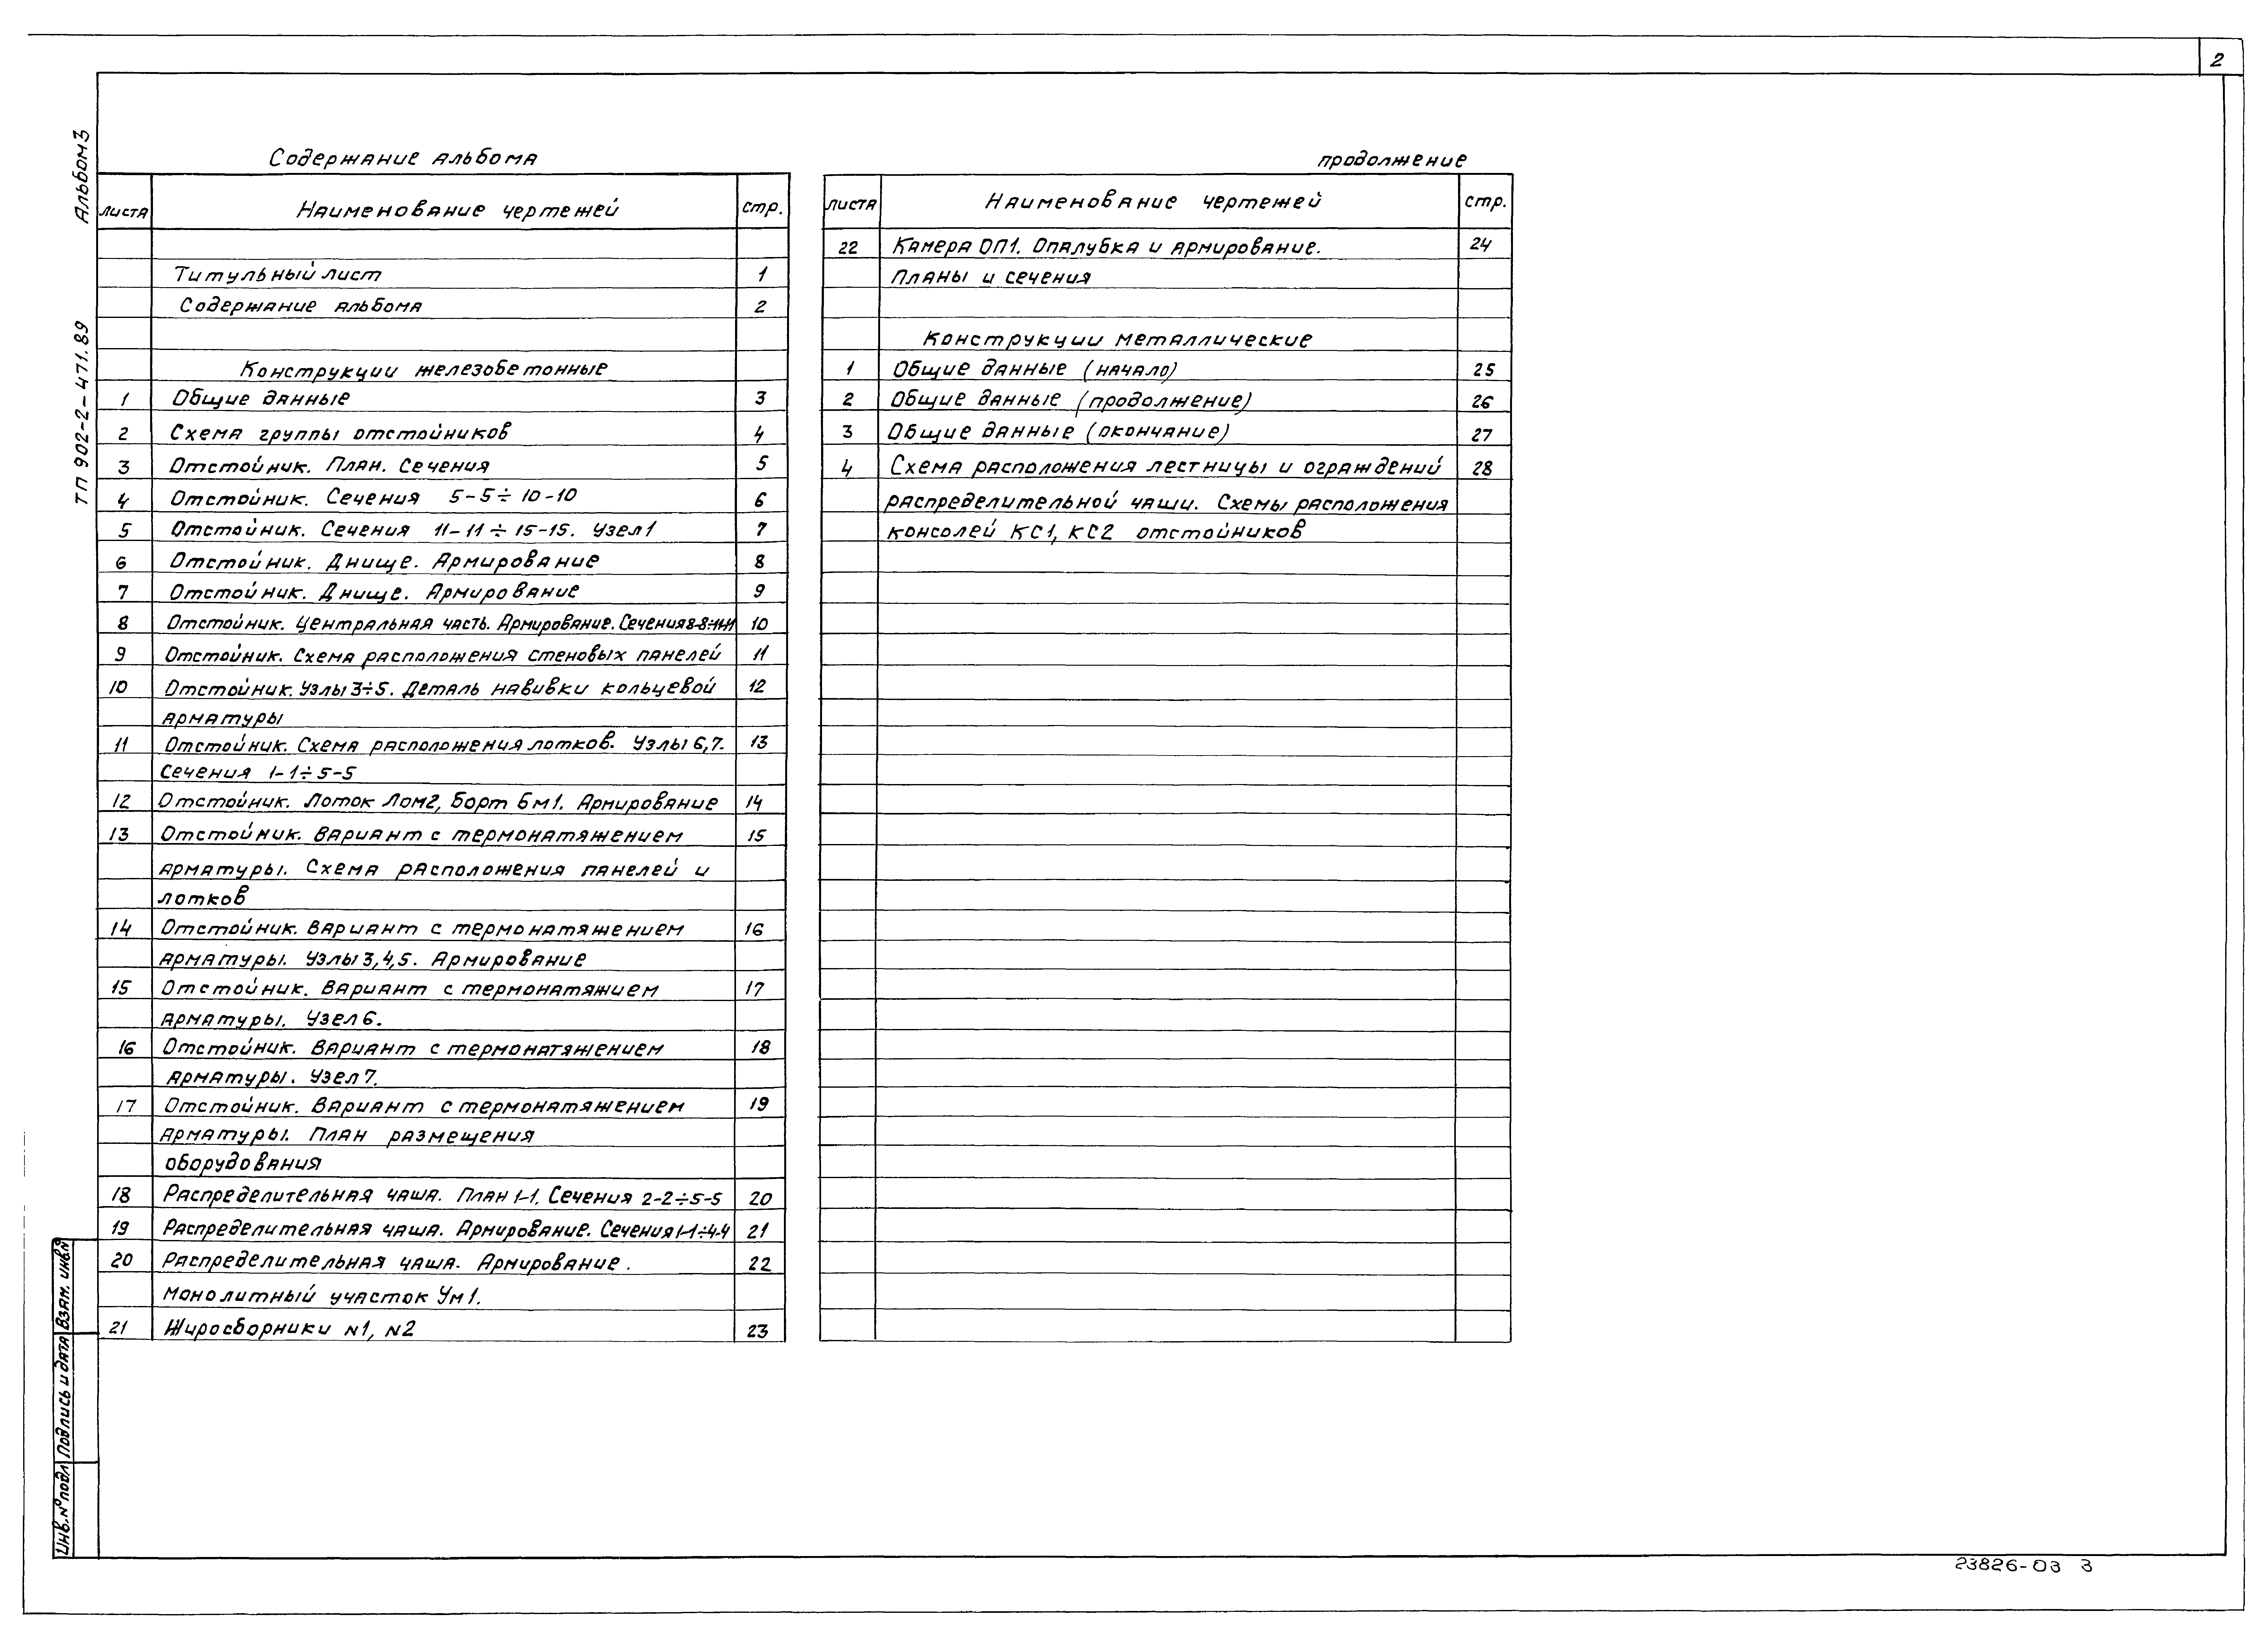 2
Альбом 3
ТП 902-2-471.89
Содержание альбома
листа Наименование чертежей стр.
Титульный лист 1
Содержание альбома 2
Конструкции железобетонные
1 Общие данные 3
2 Схема группы отстойников 4
3 Отстойник. План. Сечения 5
4 Отстойник. Сечения 5-5÷10-10 6
5 Отстойник. Сечения 11-11÷15-15. Узел 1 7
6 Отстойник. Днище. Армирование 8
7 Отстойник. Днище. Армирование 9
8 Отстойник. Центральная часть. Армирование. Сечения 8-8÷11-11 10
9 Отстойник. Схема расположения стеновых панелей 11
10 Отстойник. Узлы 3÷5. Деталь навивки кольцевой 12
арматуры
11 Отстойник. Схема расположения лотков. Узлы 6,7. 13
Сечения 1-1÷5-5
12 Отстойник. Лоток Лом2, борт Бм1. Армирование 14
13 Отстойник. Вариант с термонатяжением 15
арматуры. Схема расположения панелей и
лотков
14 Отстойник. Вариант с термонатяжением 16
арматуры. Узлы 3,4,5. Армирование
15 Отстойник. Вариант с термонатяжием 17
арматуры. Узел 6.
16 Отстойник. Вариант с термонатяжением 18
арматуры. Узел 7.
17 Отстойник. Вариант с термонатяжением 19
арматуры. План размещения
оборудования
18 Распределительная чаша. План 1-1. Сечения 2-2÷5-5 20
19 Распределительная чаша. Армирование. Сечения 1-1÷4-4 21
20 Распределительная чаша. Армирование. 22
Монолитный участок Ум1.
21 Жиросборники N1, N2 23
продолжение
листа Наименование чертежей стр.
22 Камера ОП1. Опалубка и армирование. 24
Планы и сечения
Конструкции металлические
1 Общие данные (начало) 25
2 Общие данные (продолжение) 26
3 Общие данные (окончание) 27
4 Схема расположения лестницы и ограждений 28
распределительной чаши. Схемы расположения
консолей КС1, КС2 отстойников
Инв.№подл Подпись и дата Взам. инв.№
23826-03 3